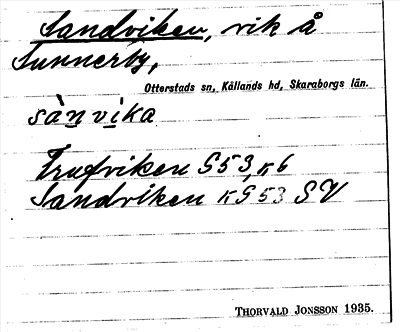 Sandviken, vik å
Sunnerby,
Otterstads sn, Kållands hd, Skaraborgs län.
sànvika
Trafviken S53, K6
Sandviken KS53 SV
THORVALD JONSSON 1935.